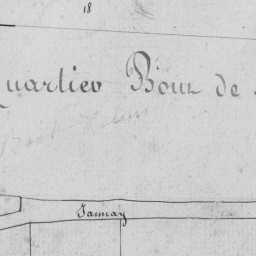 18
Quartier Bour de
Jamay